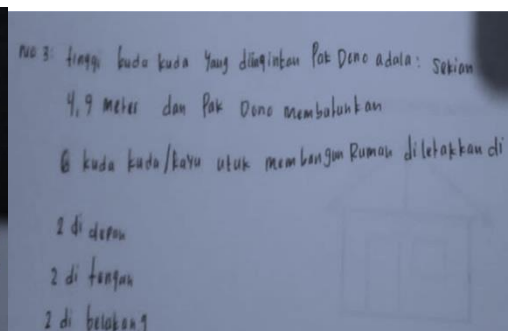 no 3: tinggi kuda kuda yang diinginkan Pak Dono adala: sekian
4,9 meter dan Pak Dono membatuhkan
6 kuda kuda/kayu utuk membangun Rumah diletakkan di
2 di depan
2 di tengah
2 di belakang